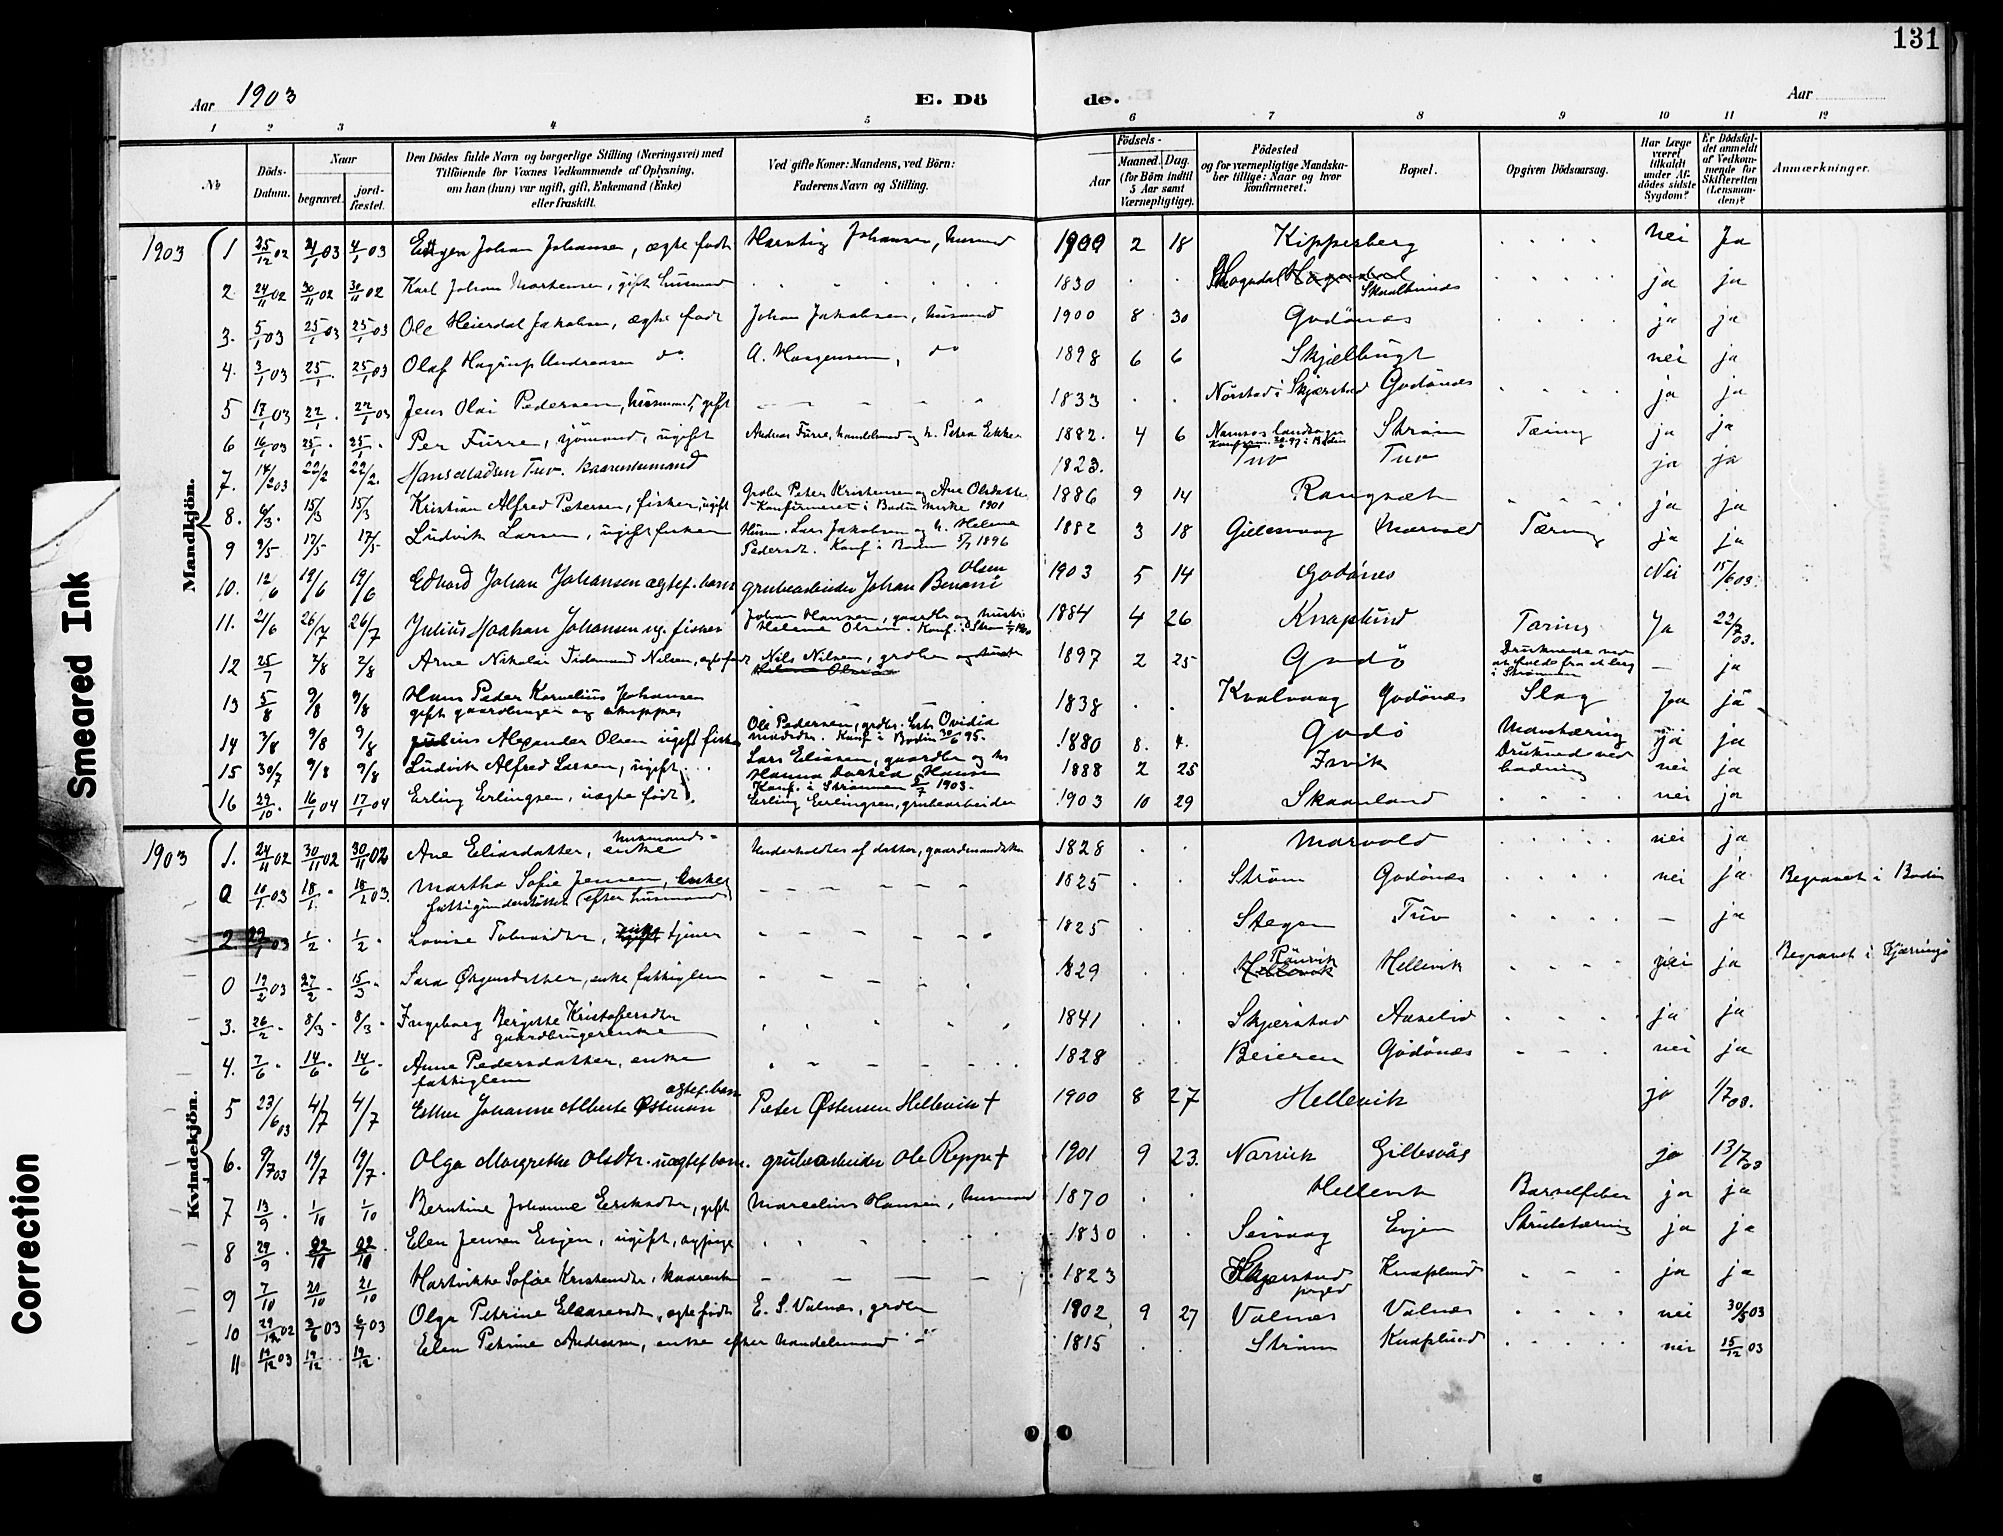 131
Aar 1903
E. Dö de.
Aar
1 2 3 4 5 6 7 8 9 10 11 12
No
Döds-Datum.
Naar
begravet.
jord-fæstet.
Den Dödes fulde Navn og borgerlige Stilling (Næringsvei) med
Tilföiende for Voxnes Vedkommende af Oplysning,
om han (hun) var ugift, gift, Enkemand (Enke)
eller fraskilt.
Ved gifte Koner: Mandens, ved Börn:
Faderens Navn og Stilling.
Födsels-
Aar
Maaned. Dag.
(for Börn indtil
5 Aar samt
Værnepligtige).
Födested
og for værnepligtige Mandska-
ber tillige: Naar og hvor
konfirmeret.
Bopæl.
Opgiven Dödsaarsag.
Har Læge
været
tilkaldt
under Af-
dödes sidste
Sygdom?
Er Dödsfal-
det anmeldt
af Vedkom-
mende for
Skifteretten
(Lensman-
den)?
Anmærkninger.
Mandkjön.
1903 1 25/12 02 4/1 03 Johan Johansen, ægte født Johansen, husmand 1900 2 18 Kipperberg nei Ja
2. 24/11 02 30/11 02 30/11 02 Karl Johan Mortensen, gift husmand 1830 ja ja
3. 5/1 03 25/1 03 25/1 03 Ole Heierdal Jakobsen, ægte født Johan Jakobsen, husmand 1900 8 30 Godönes ja ja
4. 3/1 03 25/1 25/1 03 Olaf Hagrup Andreasen do A. Morgensen, do 1898 6 6 Skjelbugt nei ja
5 17/1 03 22/1 22/1 03 Jens Olai Pedersen, husmand, gift 1833 i Skjerstad Godönes ja ja
6 16/1 03 25/1 25/1 Per Furre, sjömand, ugift Andreas Furre, handelsmand og h. Petra 1882. 4 6 Namsos landsogn Ström Tæring ja ja
7. 14/2 03 22/2 22/2 Hans Madsen Tuv. kaarenkemand 1823. Tuv Tuv ja ja
8. 6/3 15/3 15/3 Kristian Alfred Petersen, fisker, ugift Grdbr Peter Kristensen og Ane Olsdatter
Konfirmeret i Bodin kirke 1901 1886 9 14 ja ja
9 9/5 17/5 17/5 Ludvik Larsen, ugift fisker Husm. Lars Jakobsen og h. Helene
Pedersdt. Konf i Bodin 5/7 1896 1882 3 18 Gillesvaag Marvold Tæring ja ja
10. 12/6 19/6 19/6 Edvard Johan Johansen ægtef. barn grubearbeider Johan Benoni Olsen 1903 5 14 Godönes Nei 15/6 03.
11. 21/6 26/7 26/7 Julius Haakon Johansen ug. fisker Johan Hansen, gaardbr og hustru
Helene Olsen. Konf. i Ström 1884 4 26 Knaplund Tæring Ja 22/7 03.
12 25/7 2/8 2/8 Arne Nikolai Tidemand Nilsen, ægte født Nils Nilsen, grdbr 1897 2 25 Godö Druknede ved
at falde fra et berg
i Strömmen – ja
13 5/8 9/8 9/8 Hans Peder Kornelius Johansen
gift gaardbruger og skipper 1838 Kvalvaag Godönes Slag Ja ja
14 3/8 9/8 9/8 Julius Alexander Olsen ugift fisker Ole Pedersen, grdbr. Ovidia
Madsdtr. Konf i Bodin 30/6 95. 1880 8. 4. Godö Mavetæring ja ja
15 30/7 9/8 9/8 Ludvik Alfred Larsen, ugift Lars Eliasen, gaardbr og h.
Hanna Dorthea Hansen
Konf. i Strömmen 5/7 1903. 1888 2 25 Druknede ved
badning nei ja
16 29/10 16/1 04 17/1 04 Erling Erlingsen, uægte født Erling Erlingsen, grubearbeider 1903 10 29 Skaanland nei ja
Kvindekjön.
1903 1. 24/11 02 30/11 02 30/11 02 Ane Eliasdatter, husmands-
enke Underholdtes af datter, gaardmandske 1828 Marvold nei ja
0 10/1 03 18/1 18/2 03. Martha Sofie Jensen, enke
fattigunderstöttet (efter husmand) 1825 Ström Godönes nei ja Begravet i Bodin
2 22/1 03 1/2 1/2 Lovise tjener 1825 Stegen Tuv – ja
0 19/2 03 27/2 15/3 Sara Örgensdatter, enke fattiglem 1829 Hellevik ja Begravet i Kjærringö
3. 26/2 8/3 8/3 Ingeborg Bergitte Kristofersdtr
gaardbrugerenke 1841 Skjerstad ja ja
4. 7/6 14/6 14/6 Anne Pedersdatter, enke
fattiglem 1828 Beieren Godönæs nei ja
5 23/6 03 4/7 4/7 Esther Johanne Alberte Østensen ægtef. barn Peter Østensen Hellevik † 1900 8 27 Hellevik ja 1/7 03.
6. 9/7 03 19/7 19/7. Olga Margrethe Olsdtr. uægtef. barn. grubearbeider Ole Reppe † 1901 9 23. Narvik Gillesvåg ja 13/7 03
7 13/9 1/10 1/10 Berntine Johanne Eriksdtr, gift Marcelius Hansen, husmand 1870 Hellevik Barselfeber ja ja
8 29/9 Elen Jensen Evjen, ugift, 1830 Seivaag Evjen Strubetæring ja ja
9 7/10 21/10 21/10 Hartvikke Sofie Kristensdtr, kaarenke 1823 Skjerstad
prgjed Knaplund ja ja
10 29/12 02 03 03 Olga Petrine ægte født E. S. Valnes, grdbr 1902. 9 27 Valnes Valnes nei 30/5 03
11 12/12 03 19/12 19/12 Elen Petrine Andreasen, enke efter handelsmand 1815 Ström Knaplund nei 15/12 03
Smeared Ink
Correction